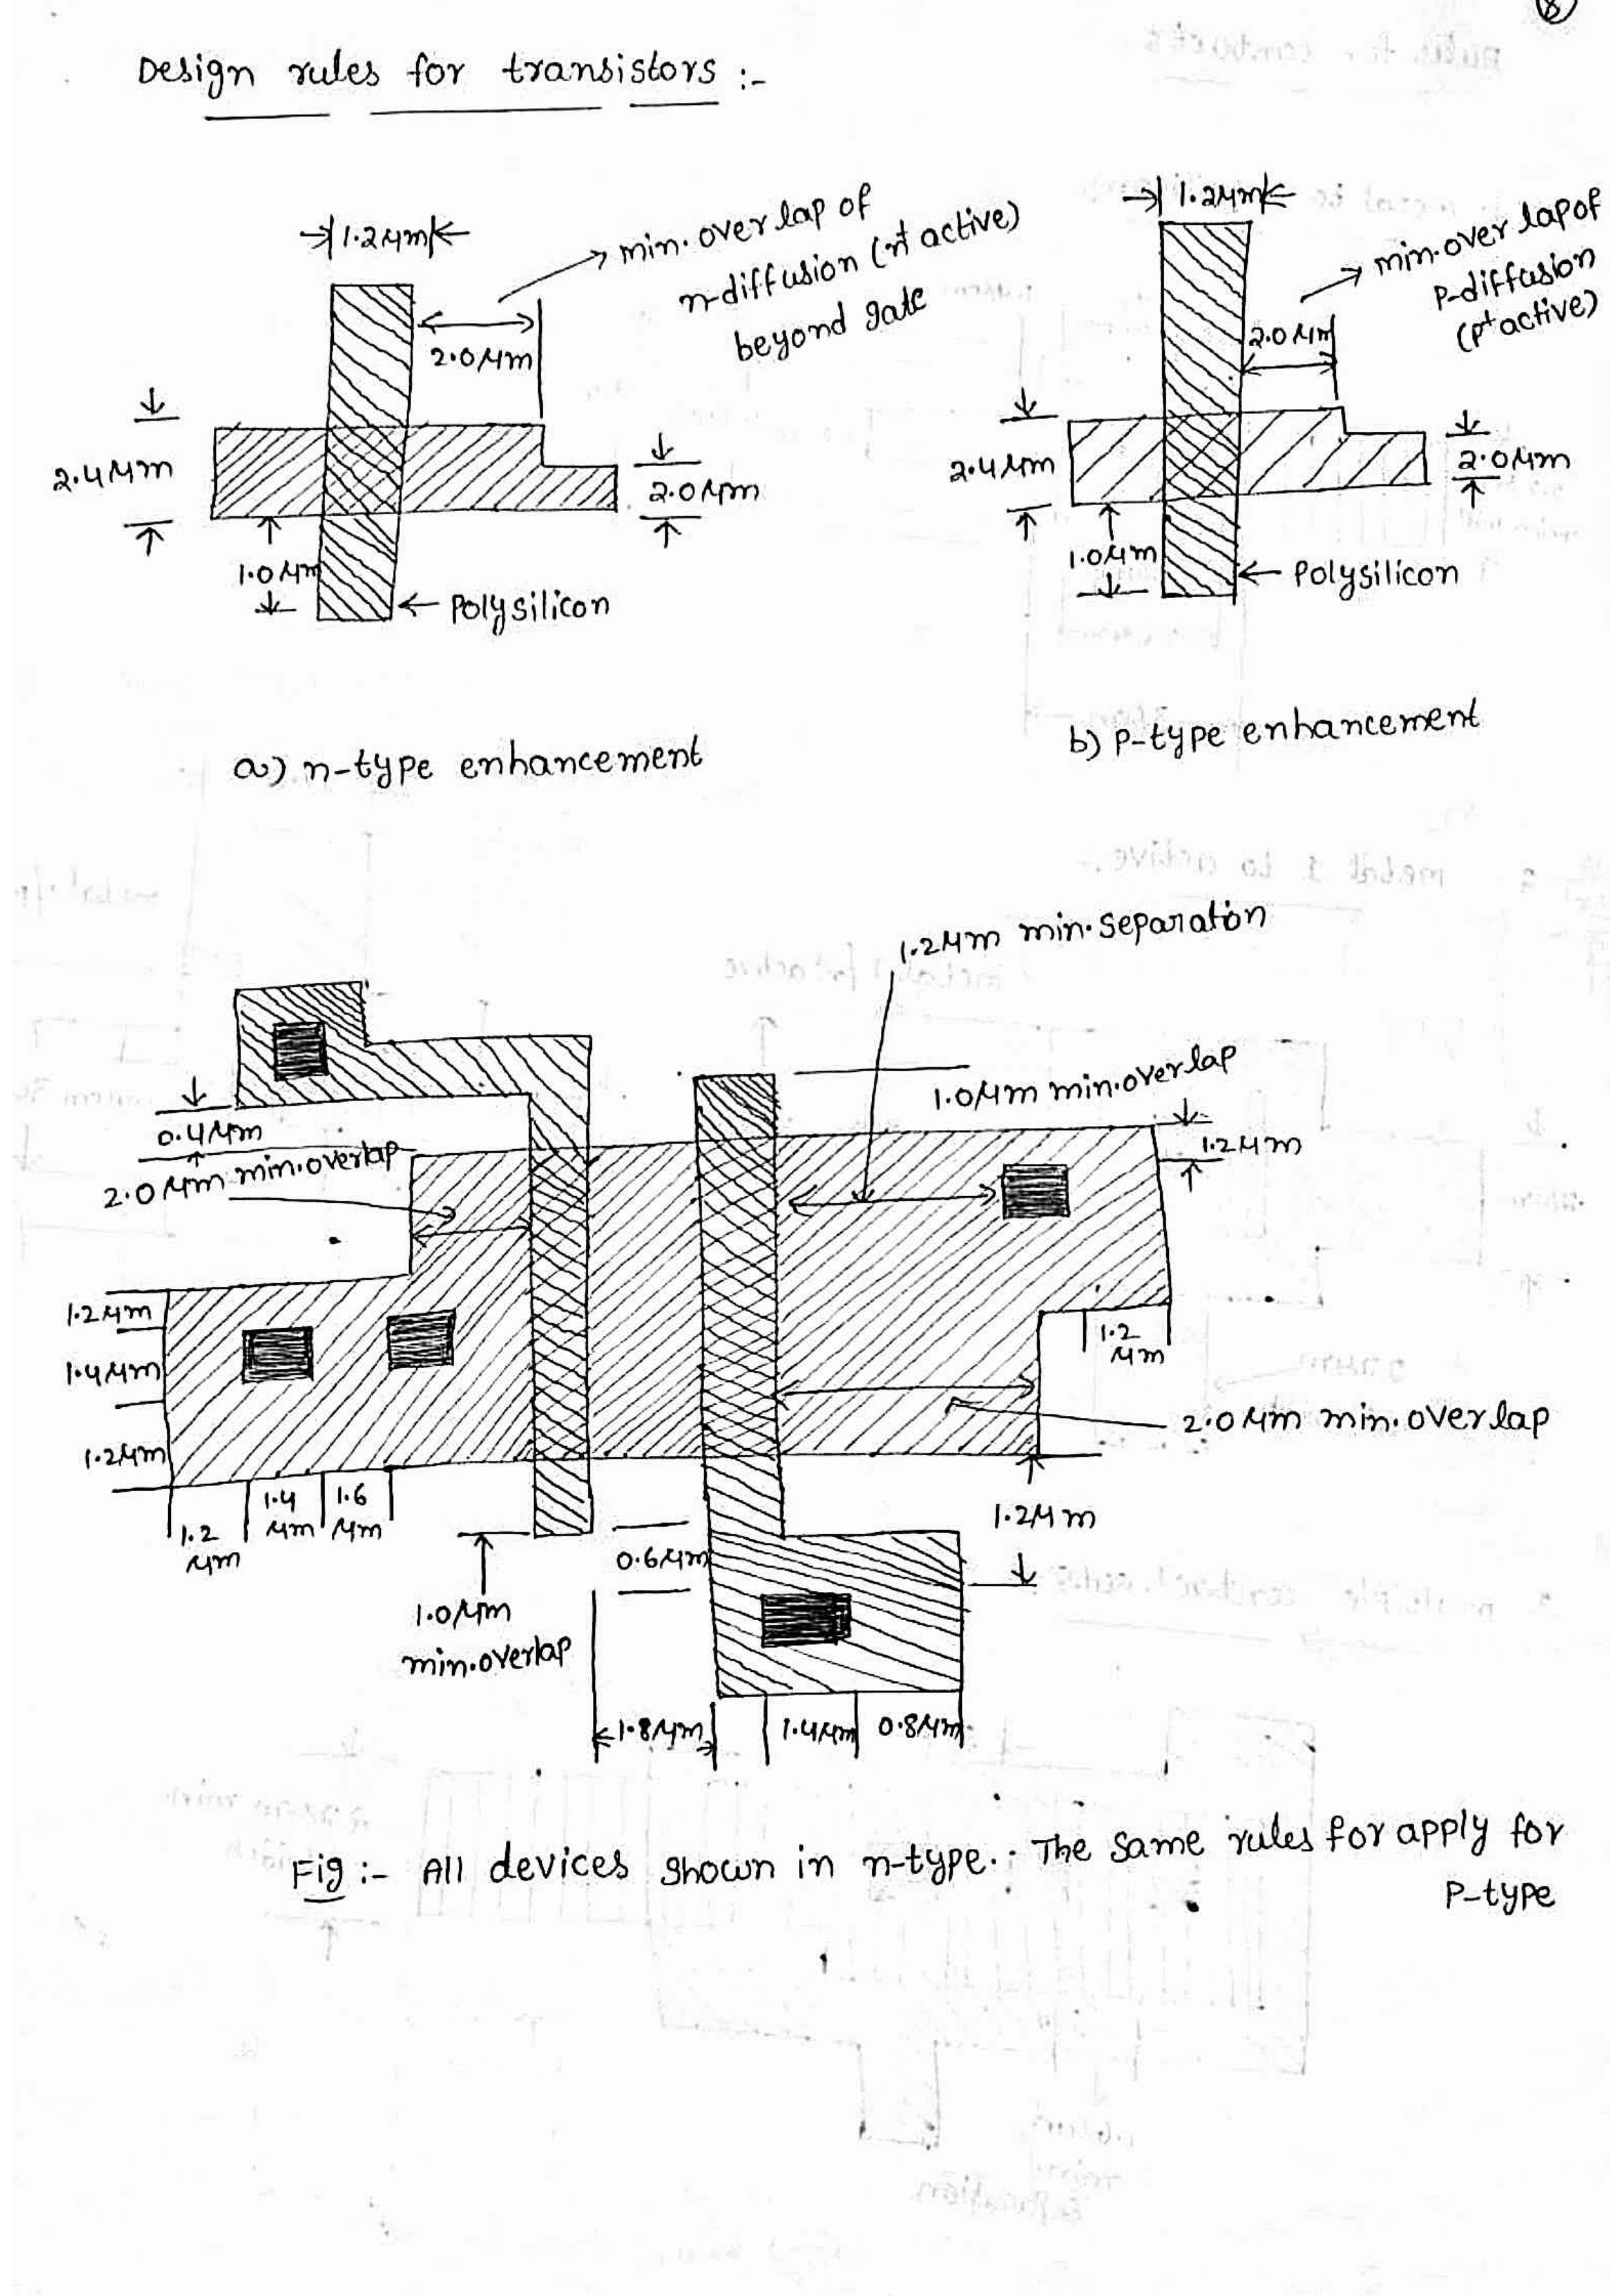 8
Design rules for transistors :-
1.2μm
min. overlap of
n-diffusion (n+ active)
beyond gate
2.0μm
2.4μm
2.0μm
1.0μm
Polysilicon
a) n-type enhancement
1.2μm
min. over lap of
P-diffusion
(p+ active)
2.0μm
2.4μm
2.0μm
1.0μm
Polysilicon
b) P-type enhancement
1.2μm min. separation
1.0μm min. overlap
0.4μm
2.0μm min. overlap
1.2μm
1.2μm
1.4μm
1.2μm
1.2
μm
2.0μm min. overlap
1.2
μm
1.4
μm
1.6
μm
1.2μm
0.6μm
1.0μm
min. overlap
1.8μm
1.4μm
0.8μm
Fig :- All devices shown in n-type. The same rules for apply for
P-type